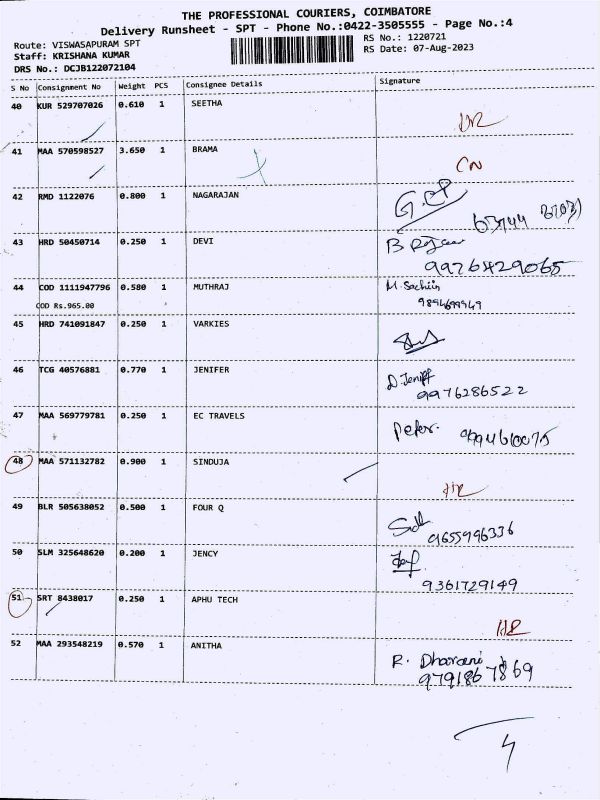 THE PROFESSIONAL COURIERS, COIMBATORE
Delivery Runsheet - SPT - Phone No.:0422-3505555 - Page No.:4
Route: VISWASAPURAM SPT RS No.: 1220721
Staff: KRISHANA KUMAR RS Date: 07-Aug-2023
DRS No.: DCJB122072104
S No Consignment No Weight PCS Consignee Details Signature
40 KUR 529707026 0.610 1 SEETHA
41 MAA 570598527 3.650 1 BRAMA
CN
42 RMD 1122076 0.800 1 NAGARAJAN
43 HRD 50450714 0.250 1 DEVI
9976429065
44 COD 1111947796 0.580 1 MUTHRAJ M. Sachin
COD Rs.965.00 9894699949
45 HRD 741091847 0.250 1 VARKIES
46 TCG 40576881 0.770 1 JENIFER
D. Jeniff
9976286522
47 MAA 569779781 0.250 1 EC TRAVELS
Peter.
48 MAA 571132782 0.900 1 SINDUJA
49 BLR 505638052 0.500 1 FOUR Q
9655996336
50 SLM 325648620 0.200 1 JENCY
9361729149
51 SRT 8438017 0.250 1 APHU TECH
HR
52 MAA 293548219 0.570 1 ANITHA
R. Dharani
9791867869